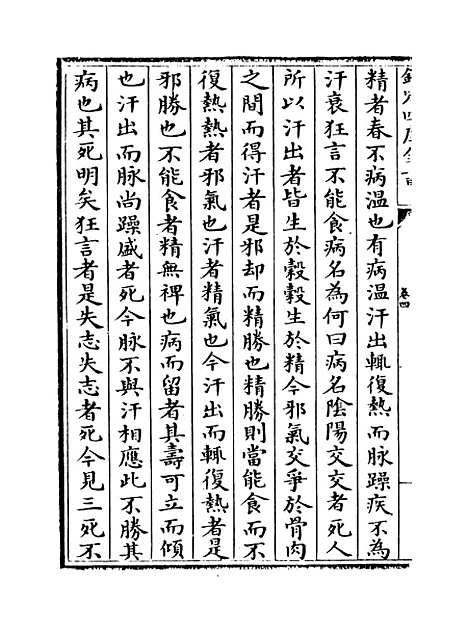 欽定四庫全書
卷四
精者春不病温也有病温汗出輙復熱而脉躁疾不為
汗衰狂言不能食病名為何曰病名陰陽交交者死人
所以汗出者皆生於穀穀生於精今邪氣交爭於骨肉
之間而得汗者是邪却而精勝也精勝則當能食而不
復熱熱者邪氣也汗者精氣也今汗出而輙復熱者是
邪勝也不能食者精無裨也病而留者其壽可立而傾
也汗出而脉尚躁盛者死今脉不與汗相應此不勝其
病也其死明矣狂言者是失志失志者死今見三死不